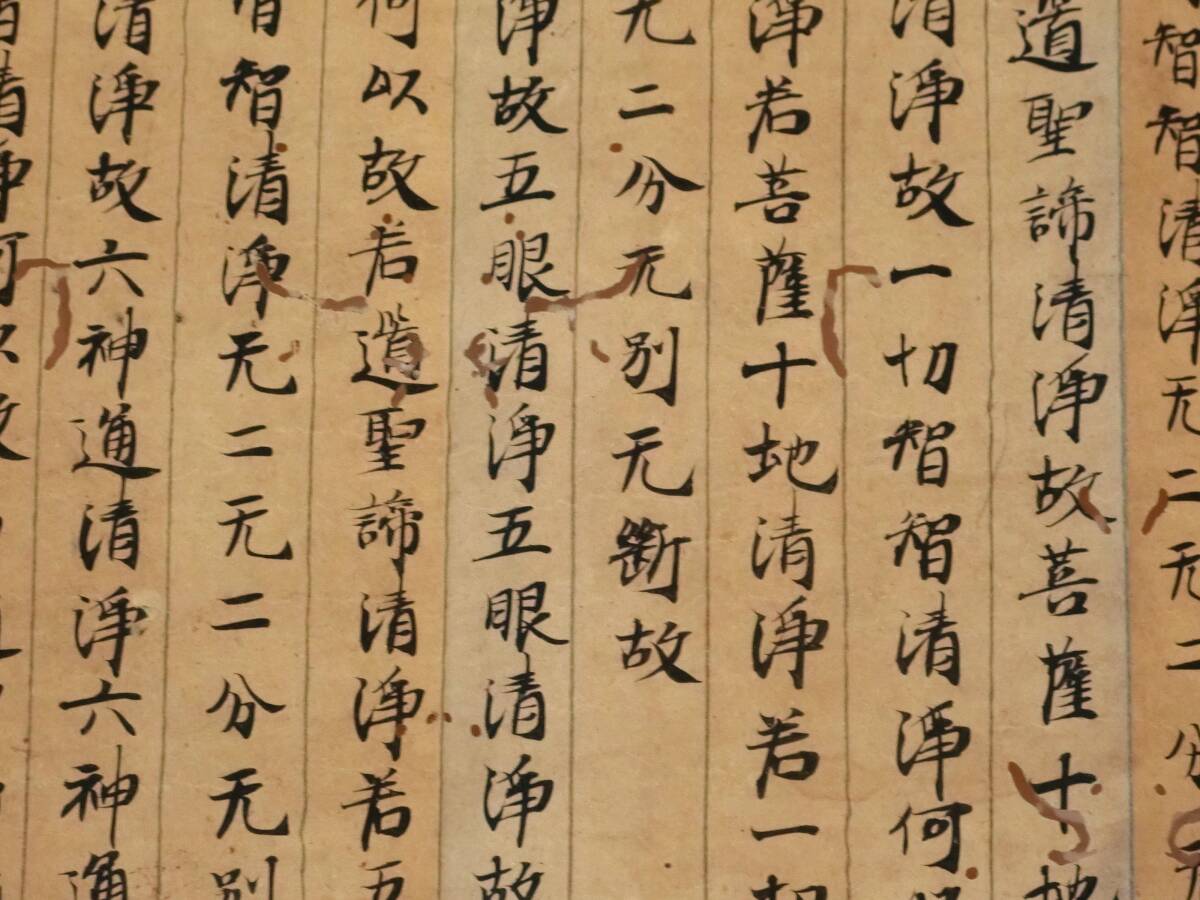 智智清淨无二无二分无
道聖諦清淨故菩薩十地
清淨故一切智智清淨何
淨若菩薩十地清淨若一切
无二分无别无斷故
淨故五眼清淨五眼清淨故
何以故若道聖諦清淨若五
智智清淨无二无二分无别
清淨故六神通清淨六神通
清淨何以故